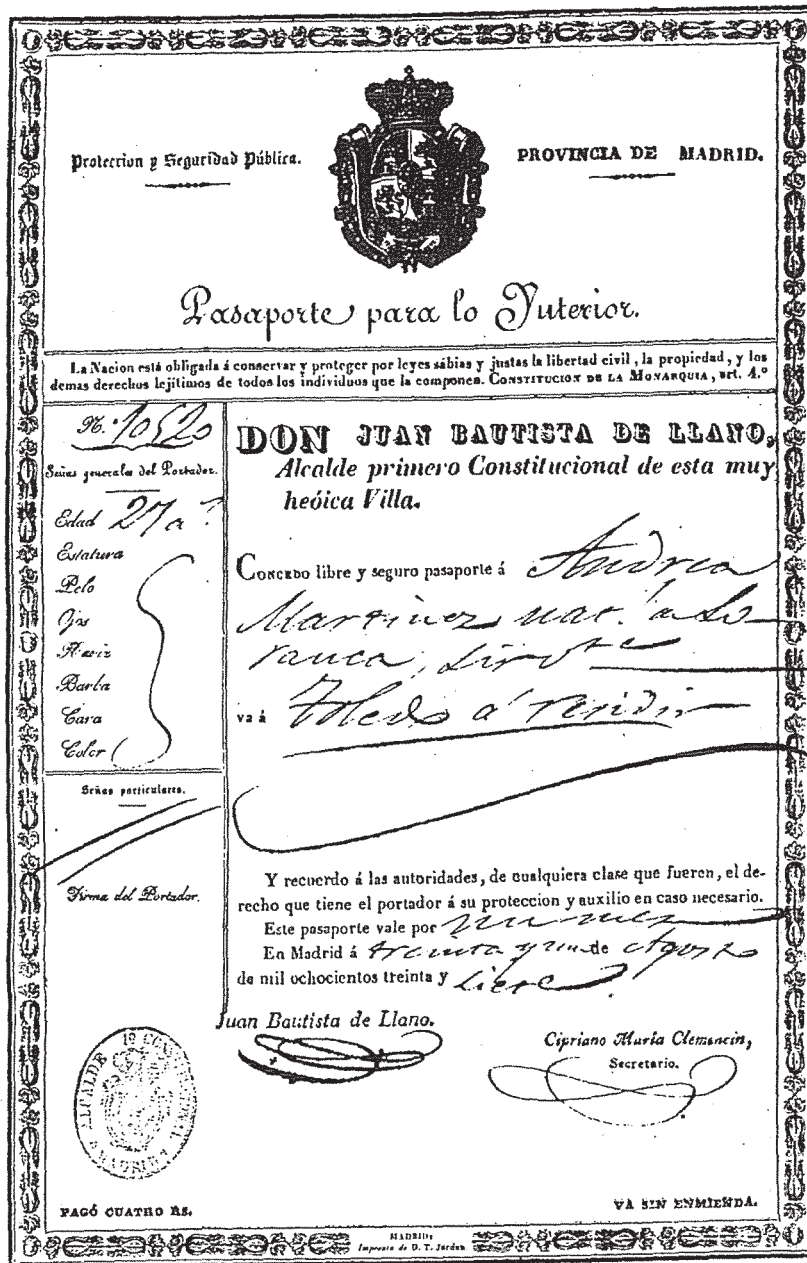 Proteccion y Seguridad Pública.
PROVINCIA DE MADRID.
Pasaporte para lo Ynterior.
La Nacion está obligada á conservar y proteger por leyes sábias y justas la libertad civil, la propiedad, y los
demas derechos lejítimos de todos los individuos que la componen. CONSTITUCION DE LA MONARQUIA, art. 4.º
N.
Señas generales del Portador.
Edad 27 a.s
Estatura
Pelo
Ojos
Nariz
Barba
Cara
Color
Señas particulares.
Firma del Portador.
DON JUAN BAUTISTA DE LLANO,
Alcalde primero Constitucional de esta muy
heóica Villa.
CONCEDO libre y seguro pasaporte á Andrea
Martinez nat.l a Lo
ranca,
va á Toledo á
Y recuerdo á las autoridades, de cualquiera clase que fueren, el de-
recho que tiene el portador á su proteccion y auxilio en caso necesario.
Este pasaporte vale por un mes
En Madrid á treinta y uno de Agosto
de mil ochocientos treinta y siete
Juan Bautista de Llano.
Cipriano María Clemencin,
Secretario.
ALCALDE 1º CONSTITUCIONAL
MADRID
PAGÓ CUATRO RS.
VA SIN ENMIENDA.
MADRID:
Imprenta de D. T. Jordan